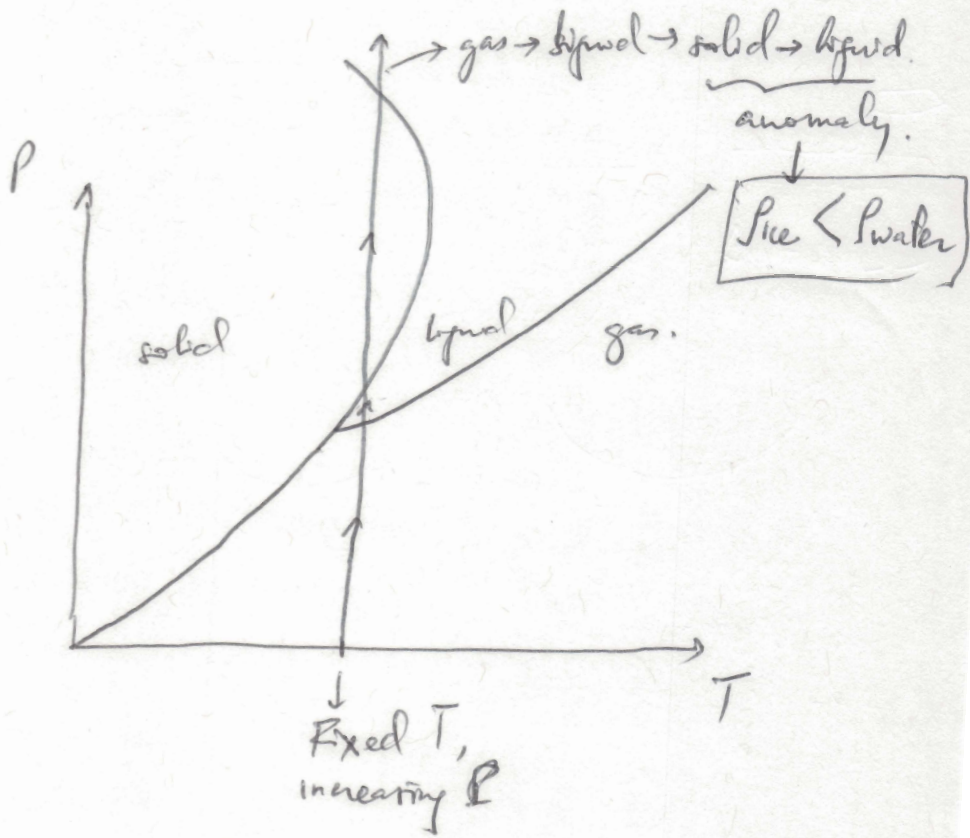 → gas → liquid → solid → liquid.
anomaly.
P
ρice < ρwater
solid
liquid
gas.
T
Fixed T,
increasing P